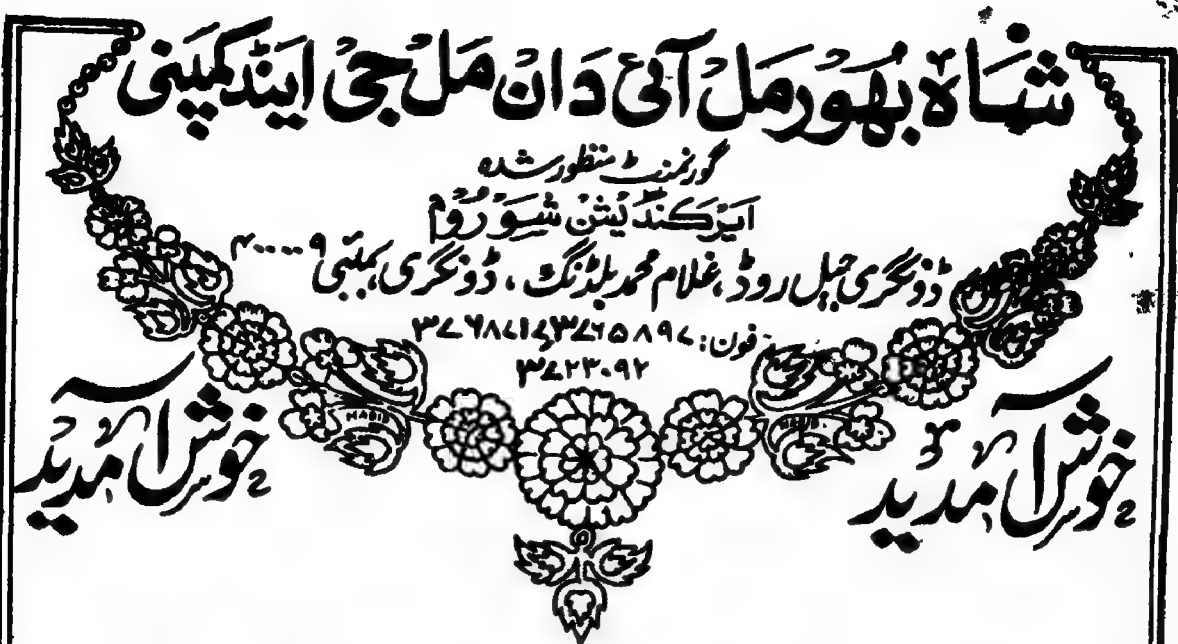 شاہ بھورمل آئی دان مل جی اینڈ کمپنی
گورنمنٹ منظور شدہ
ایرکنڈیشن شوروم
ڈونگری جیل روڈ، غلام محمد بلڈنگ، ڈونگری، بمبئی ۴۰۰۰۰۹
فون: ۳۷۶۵۸۹۷ ۳۷۶۸۷۱۷
۳۷۲۳۰۹۲
خوش آمدید
خوش آمدید
HABIB